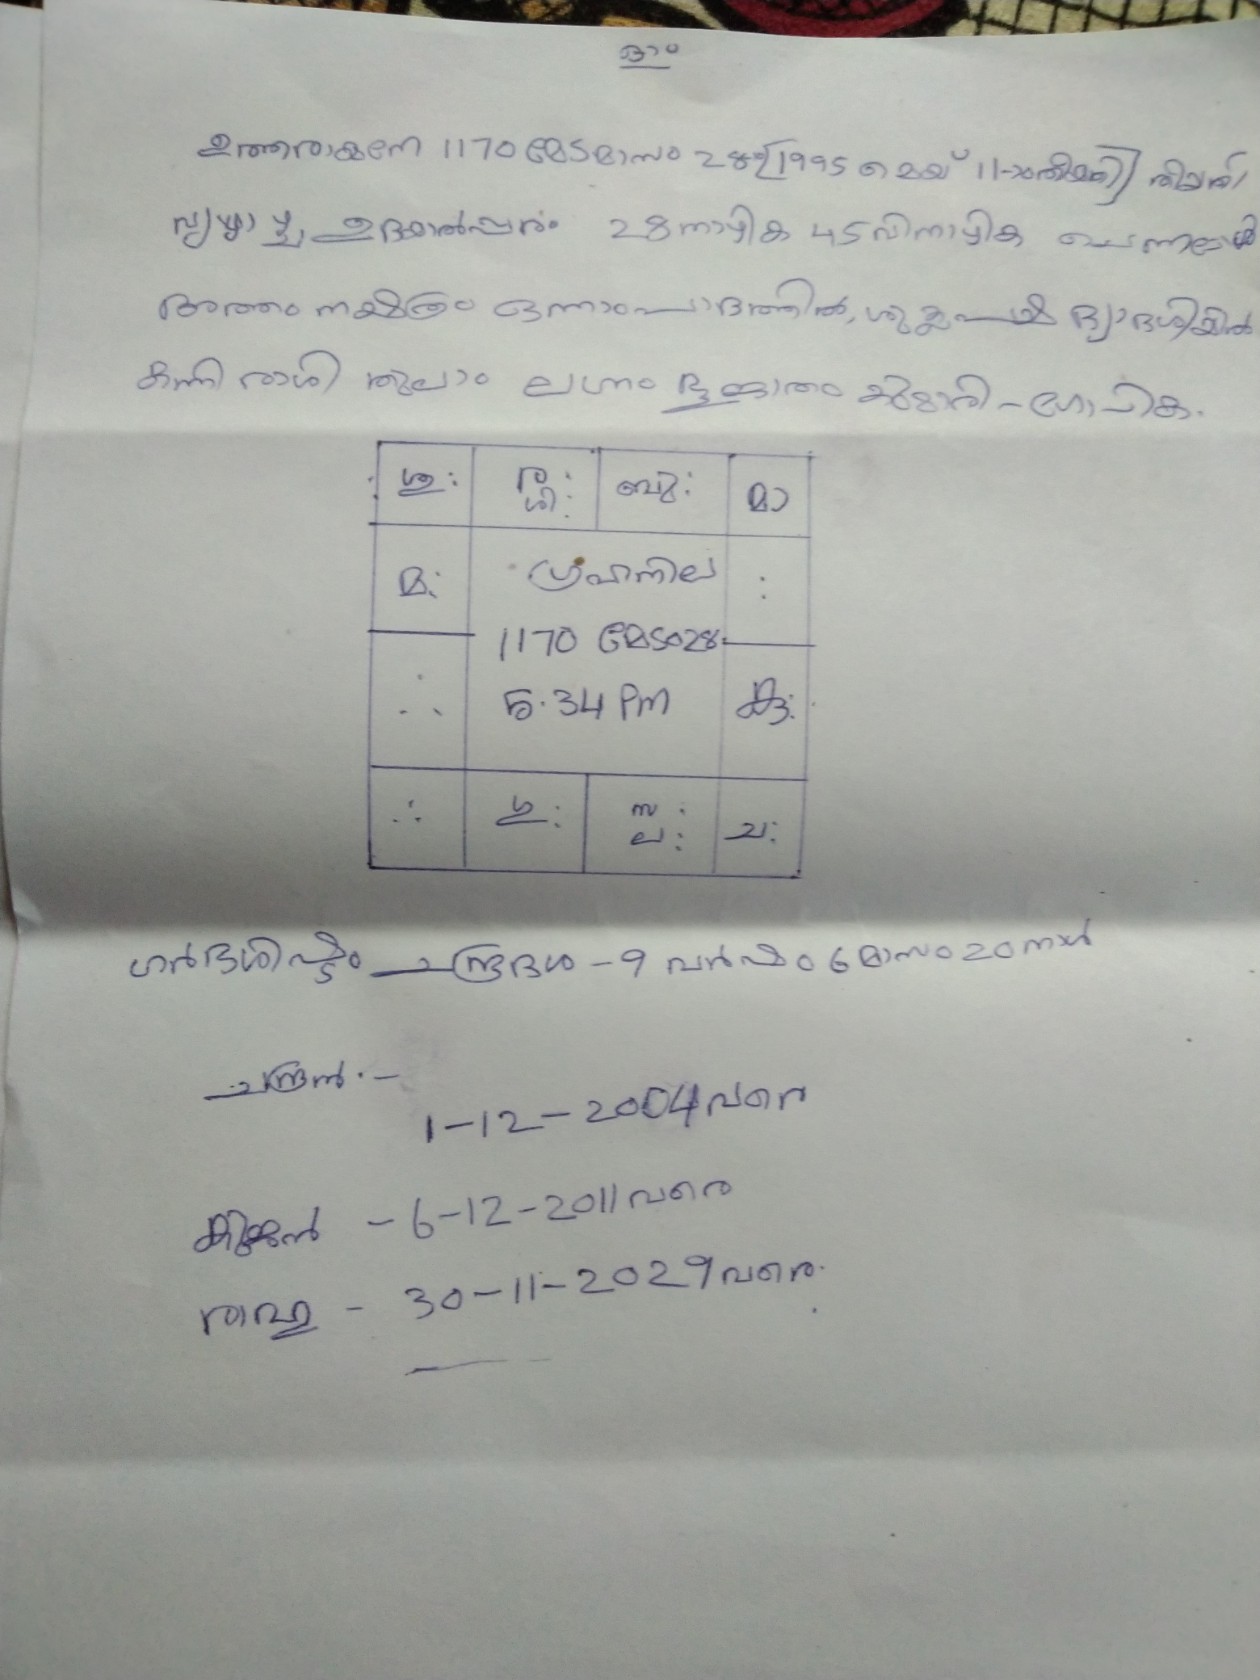 ഓം
ഉത്തരായനേ 1170 മേടമാസം 28 ന് (1995 മെയ് 11-ാം തീയതി)
വ്യാഴാഴ്ച ഉദയാൽപരം 28 നാഴിക 45 വിനാഴിക ചെന്നപ്പോൾ
അത്തം നക്ഷത്രം ഒന്നാംപാദത്തിൽ, ശുക്ലപക്ഷ ദ്വാദശിയിൽ
കന്നി രാശി തുലാം ലഗ്നം ഭൂജാതം കുമാരി - ഗോപിക.
ശു: ര: ബു: മാ
ശി:
മ: ഗ്രഹനില :
1170 മേടം 28
∴ 5.34 PM കു:
∴ ഗു: സ: ച:
ല:
ഗർഭശിഷ്ടം ചന്ദ്രദശ - 9 വർഷം 6 മാസം 20 നാൾ
ചന്ദ്രൻ :-
1-12-2004 വരെ
കുജൻ - 6-12-2011 വരെ
രാഹു - 30-11-2029 വരെ.